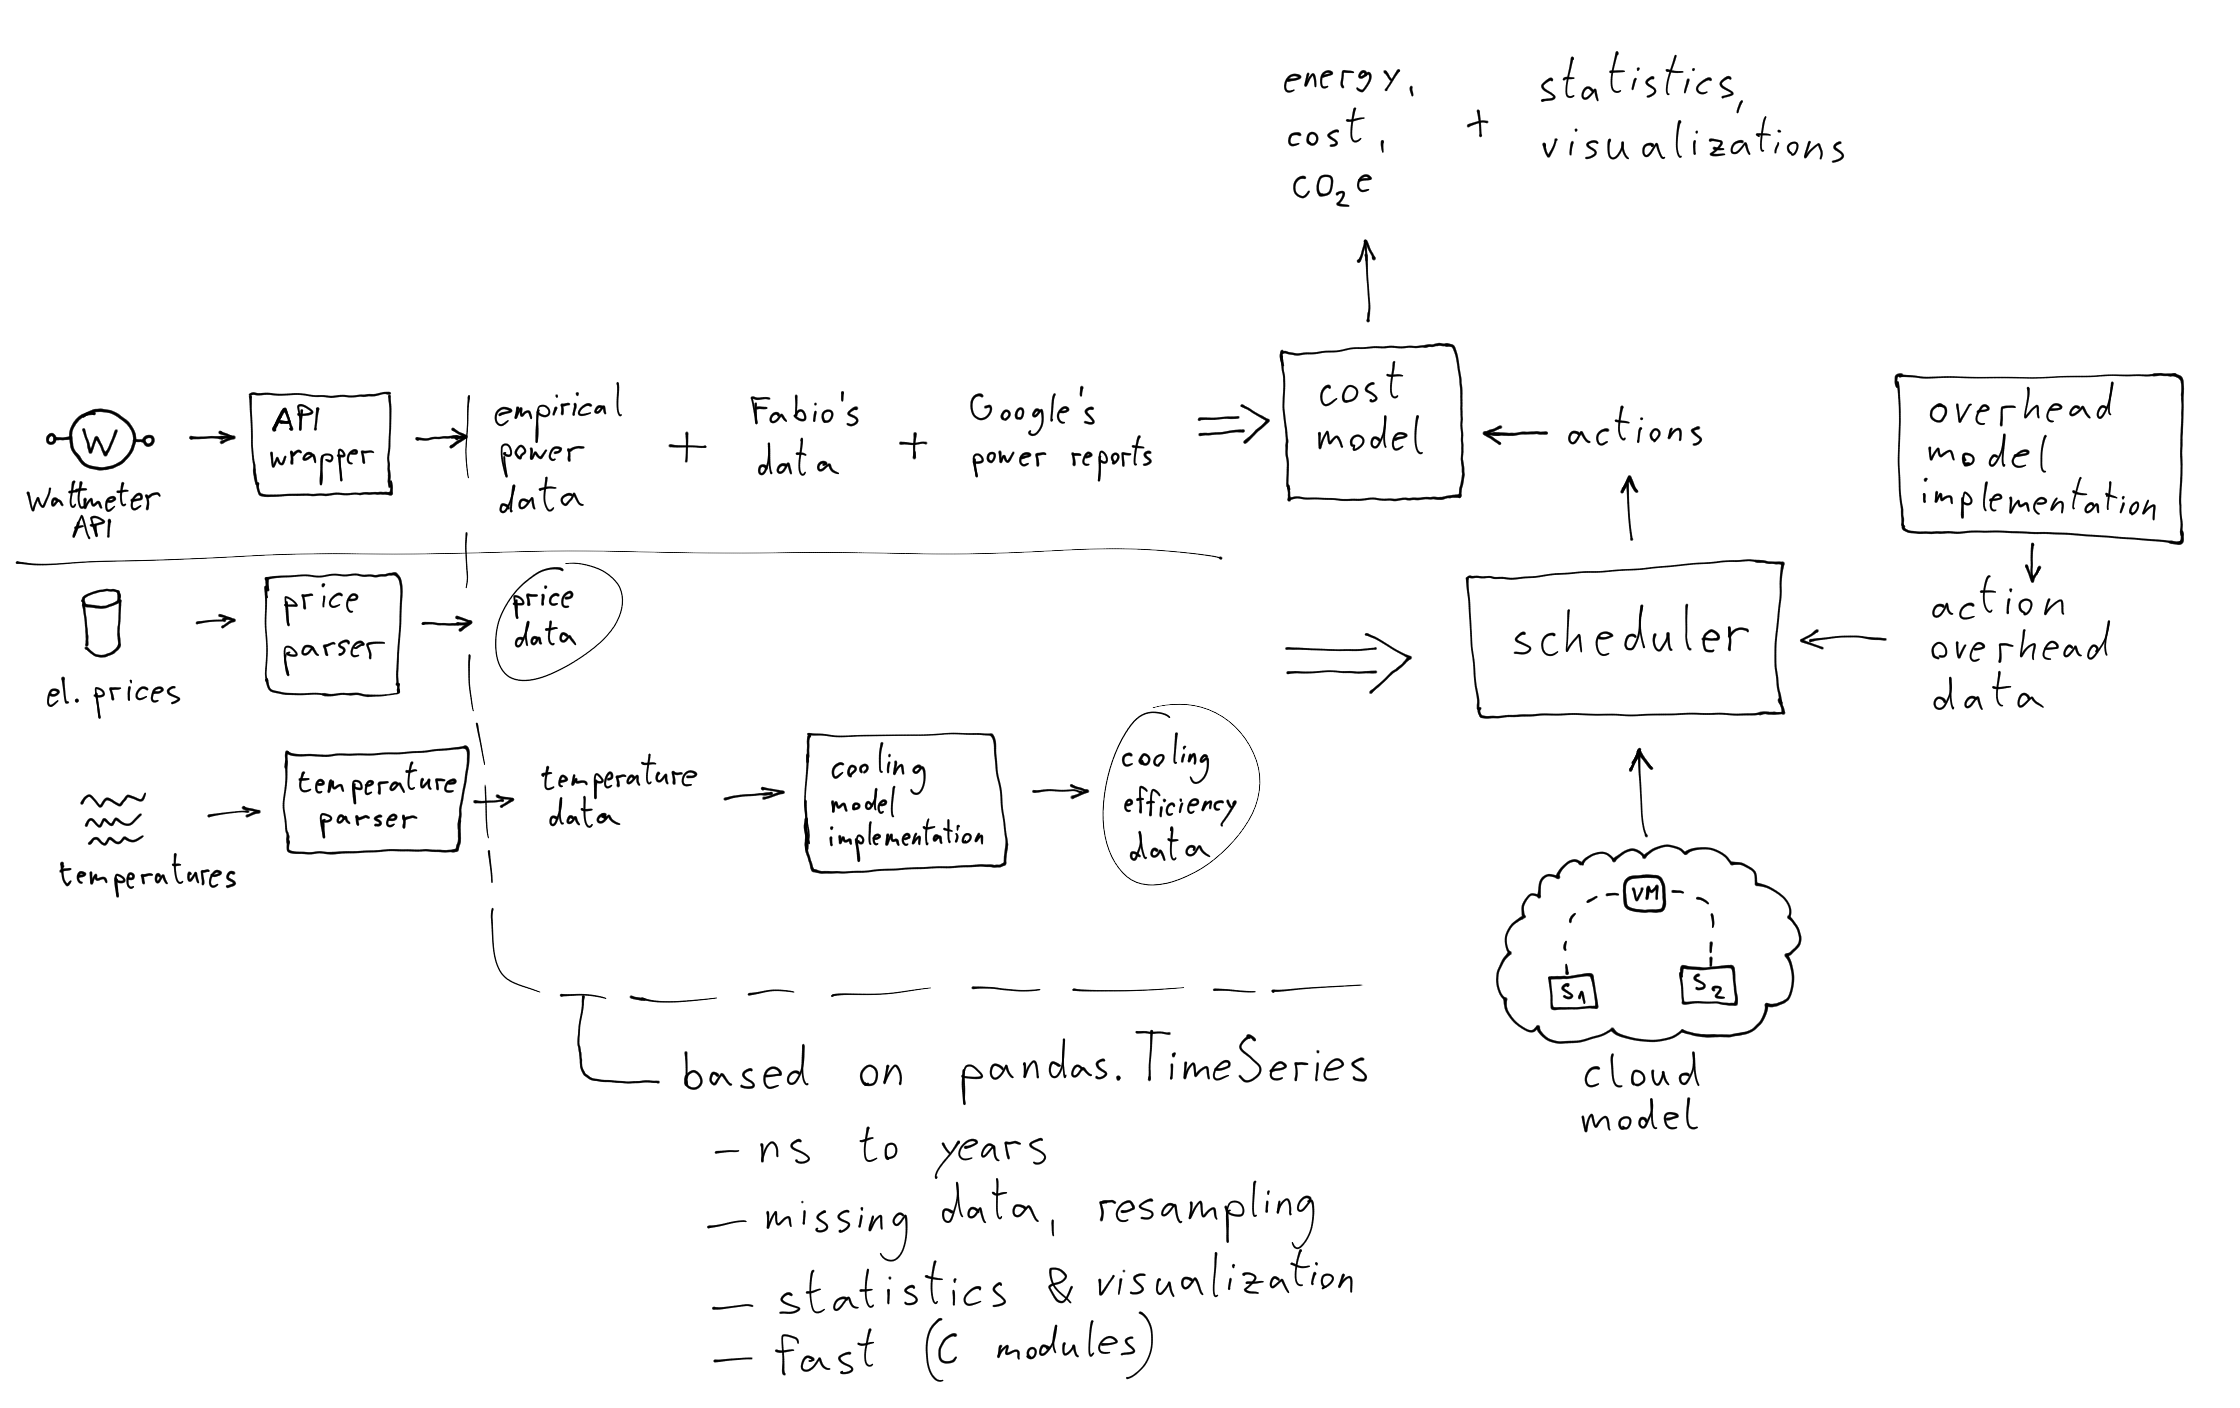 energy,
cost,
CO₂e
+
statistics,
visualizations
W
Wattmeter
API
API
wrapper
empirical
power
data
+
Fabio's
data
+
Google's
power reports
cost
model
actions
overhead
model
implementation
el. prices
price
parser
price
data
scheduler
action
overhead
data
temperatures
temperature
parser
temperature
data
cooling
model
implementation
cooling
efficiency
data
VM
S1
S2
cloud
model
based on pandas.TimeSeries
- ns to years
- missing data, resampling
- statistics & visualization
- fast (C modules)